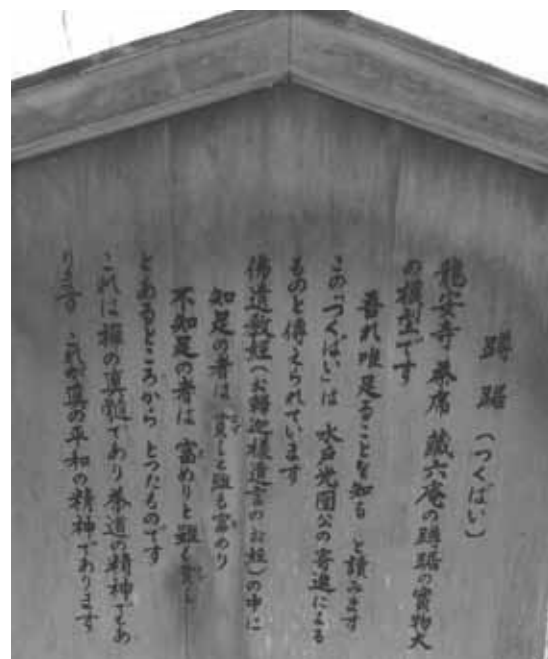 蹲踞(つくばい)
龍安寺茶席 蔵六庵の蹲踞の實物大
の模型です
吾れ唯足ることを知る と讀みます
この「つくばい」は 水戸光圀公の寄進による
ものと傳えられています
佛遺教経(お釋迦様遺言のお経)の中に
知足の者は 貧しと雖も富めり
不知足の者は 富めりと雖も貧し
とあるところから とつたものです
これは禅の真髄であり茶道の精神であ
ります これが真の平和の精神であります